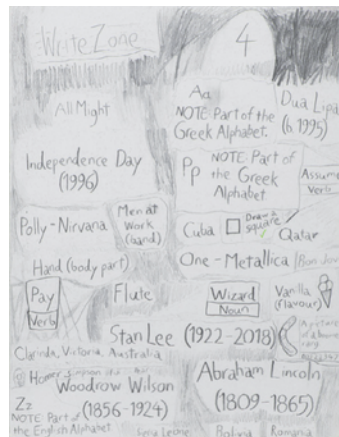 Write Zone
4
All Might
Aa
NOTE Part of the
Greek Alphabet.
Dua Lipa
(b. 1995)
Independence Day
(1996)
Pp
NOTE Part of
the Greek
Alphabet
Assume
Verb
Polly - Nirvana
Men at
Work
(band)
Cuba
Draw a
square
Qatar
Hand (body part)
One - Metallica
Bon Jovi
Pay
Verb
Flute
Wizard
Noun
Vanilla
(flavour)
Stan Lee (1922-2018)
Clarinda, Victoria, Australia
Homer Simpson
Woodrow Wilson
(1856-1924)
Abraham Lincoln
(1809-1865)
Zz
NOTE Part of
the English Alphabet
Romania